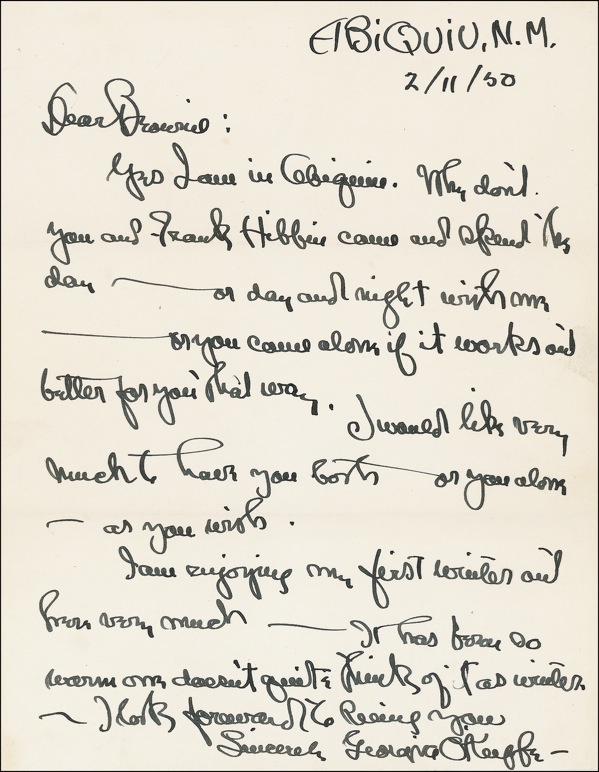 ABiQUiU, N.M.
2/11/50
Dear Brownie:
Yes I am in Abiquiu. Why don't
you and Frank Hibbin come and spend the
day — or day and night with me
— or you come alone if it works out
better for you that way. I would like very
much to have you both — or you alone
— as you wish.
I am enjoying my first winter out
here very much — It has been so
warm one doesn't quite think of it as winter
— I look forward to seeing you
Sincerely Georgia O'Keeffe —